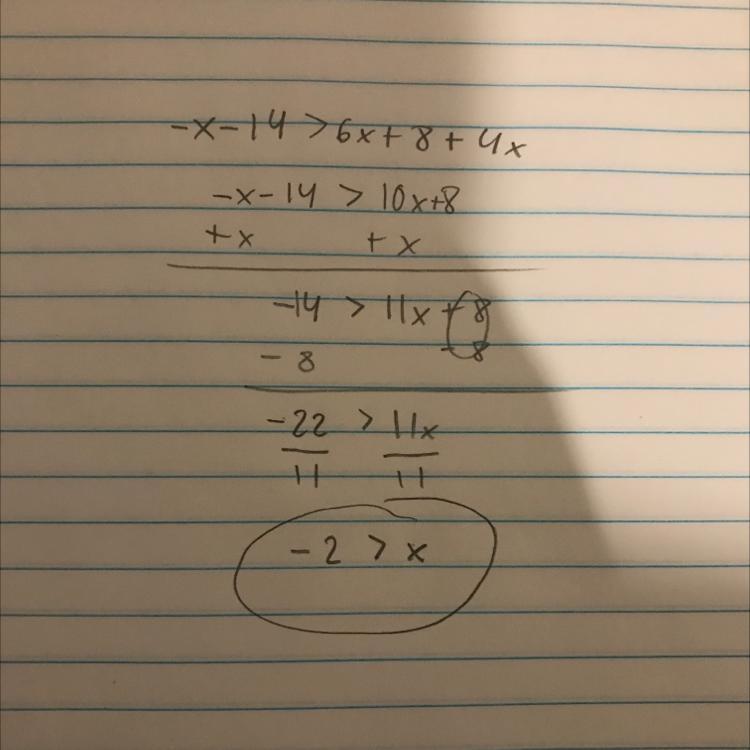 -x-14 > 6x+8+4x
-x-14 > 10x+8
+x +x
-14 > 11x+8
-8 -8
-22 > 11x
11 11
-2 > x